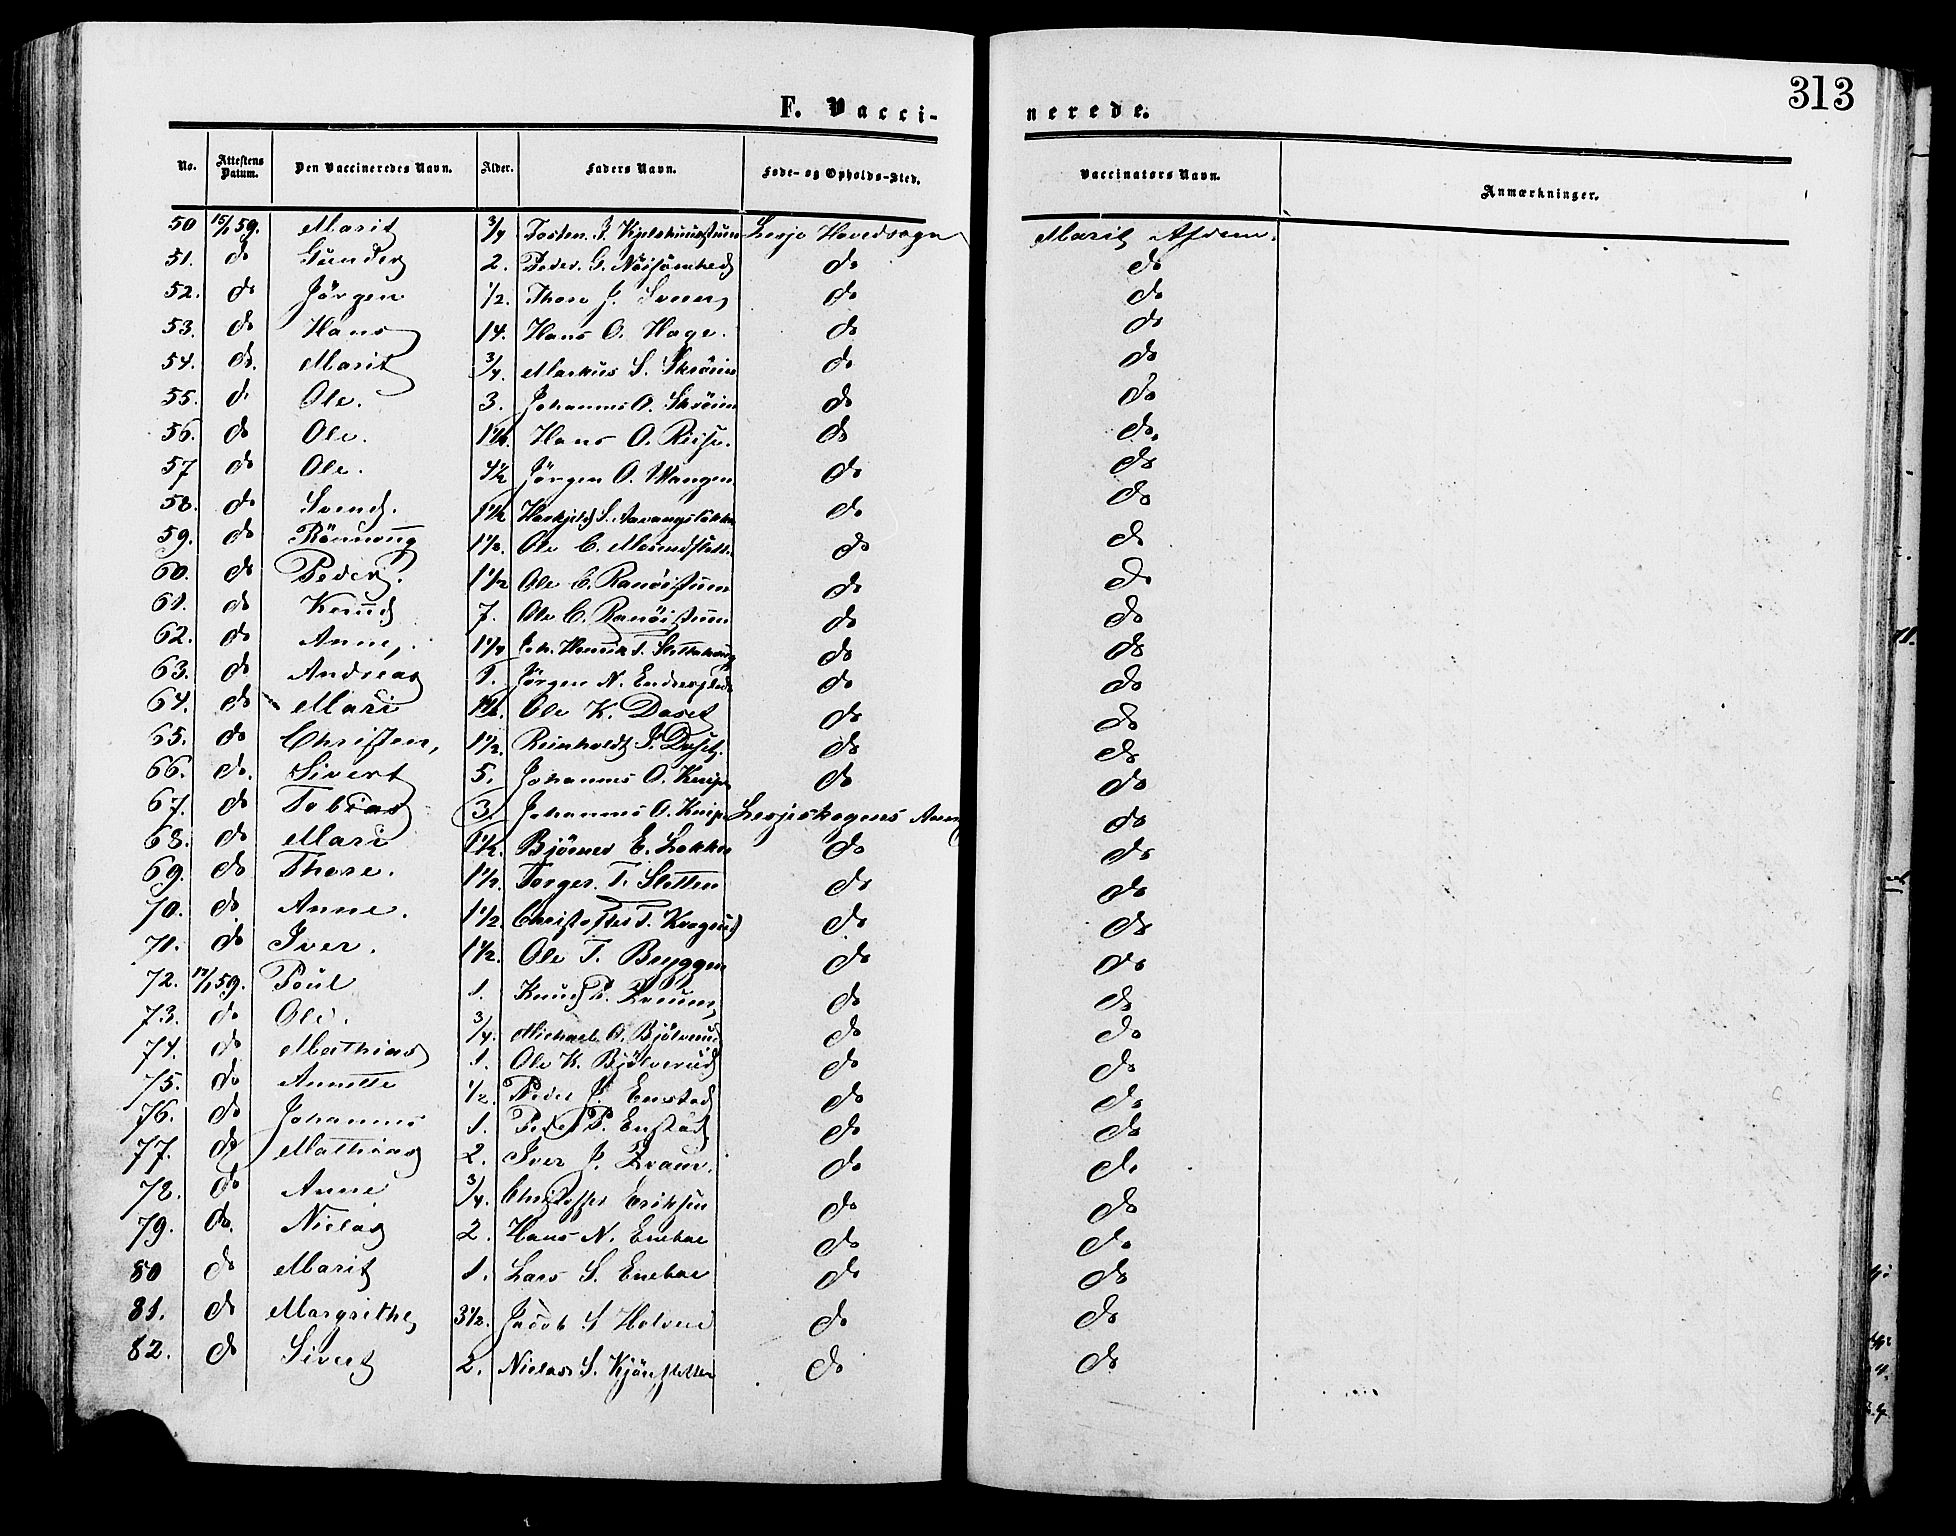 313
F. Vaccinerede.
No. Attestens Datum. Den Vaccineredes Navn. Alder. Faders Navn. Føde- og Opholds-Sted. Vaccinators Navn. Anmærkninger.
50 15/1 59. Marit 3/4 Hovedsogn Marit
51. do 2. Peder G. do do
52. do Jörgen 1/2. Thore J. do do
53. do Hans 14. Hans O. Hage. do do
54. do. Marit 3/4. Markus S. do do
55. do Ole. 3. Johannes O. do do
56. do Ole. 1 1/2. Hans O. Riise. do do.
57 do Ole. 4 1/2 Jörgen O. Wangen do do
58. do Svend. 1 1/2 do do
59. do Rönnoug 1 1/2. Ole C. do do
60. do Peder. 1 1/2 Ole C. Ranöistuen do do
61. do Knud 7. Ole C. Ranöistuen do do
62. do Anne, 1 1/4 Joh. Henrik do do
63. do Andreas 1. Jörgen N. do do
64. do Mari Ole K. Daset do do
65. do Christen, 1 1/2. Reinholdt do do
66. do. Sivert 5. Johannes O. Knipe do do
67. do Tobias 3. Johannes O. Knipe Lesjeskogens Annex do
68. do Mari 1 1/2. E. Løkken do do
69. do Thore. 1 1/2. Torger. T. Sletten do do
70. do Anne. 1 1/2. Christoffer do do
71. do Iver. 1 1/2. Ole T. Bryggen do do
72. 17/1 59. Poul 1. Knud P. do do
73. do Ole. 3/4. Michael O. do do
74. do Mathias 1. Ole K. Bjölverud do do
75. do Annette 1/2. Peder J. Enstad do do
76. do Johannes 1. Peder P. Enstad do do
77. do Mathias 2. Iver J. do do
78. do Anne 3/4. Christoffer Eriksen do do
79. do. Nielas 2. Hans N. Eneboe do do
80 do Marit 1. Lars S. Eneboe do do
81. do Margrithe 3 1/2. Jacob S do do
82. do Sivert 2. Nielas S. do do